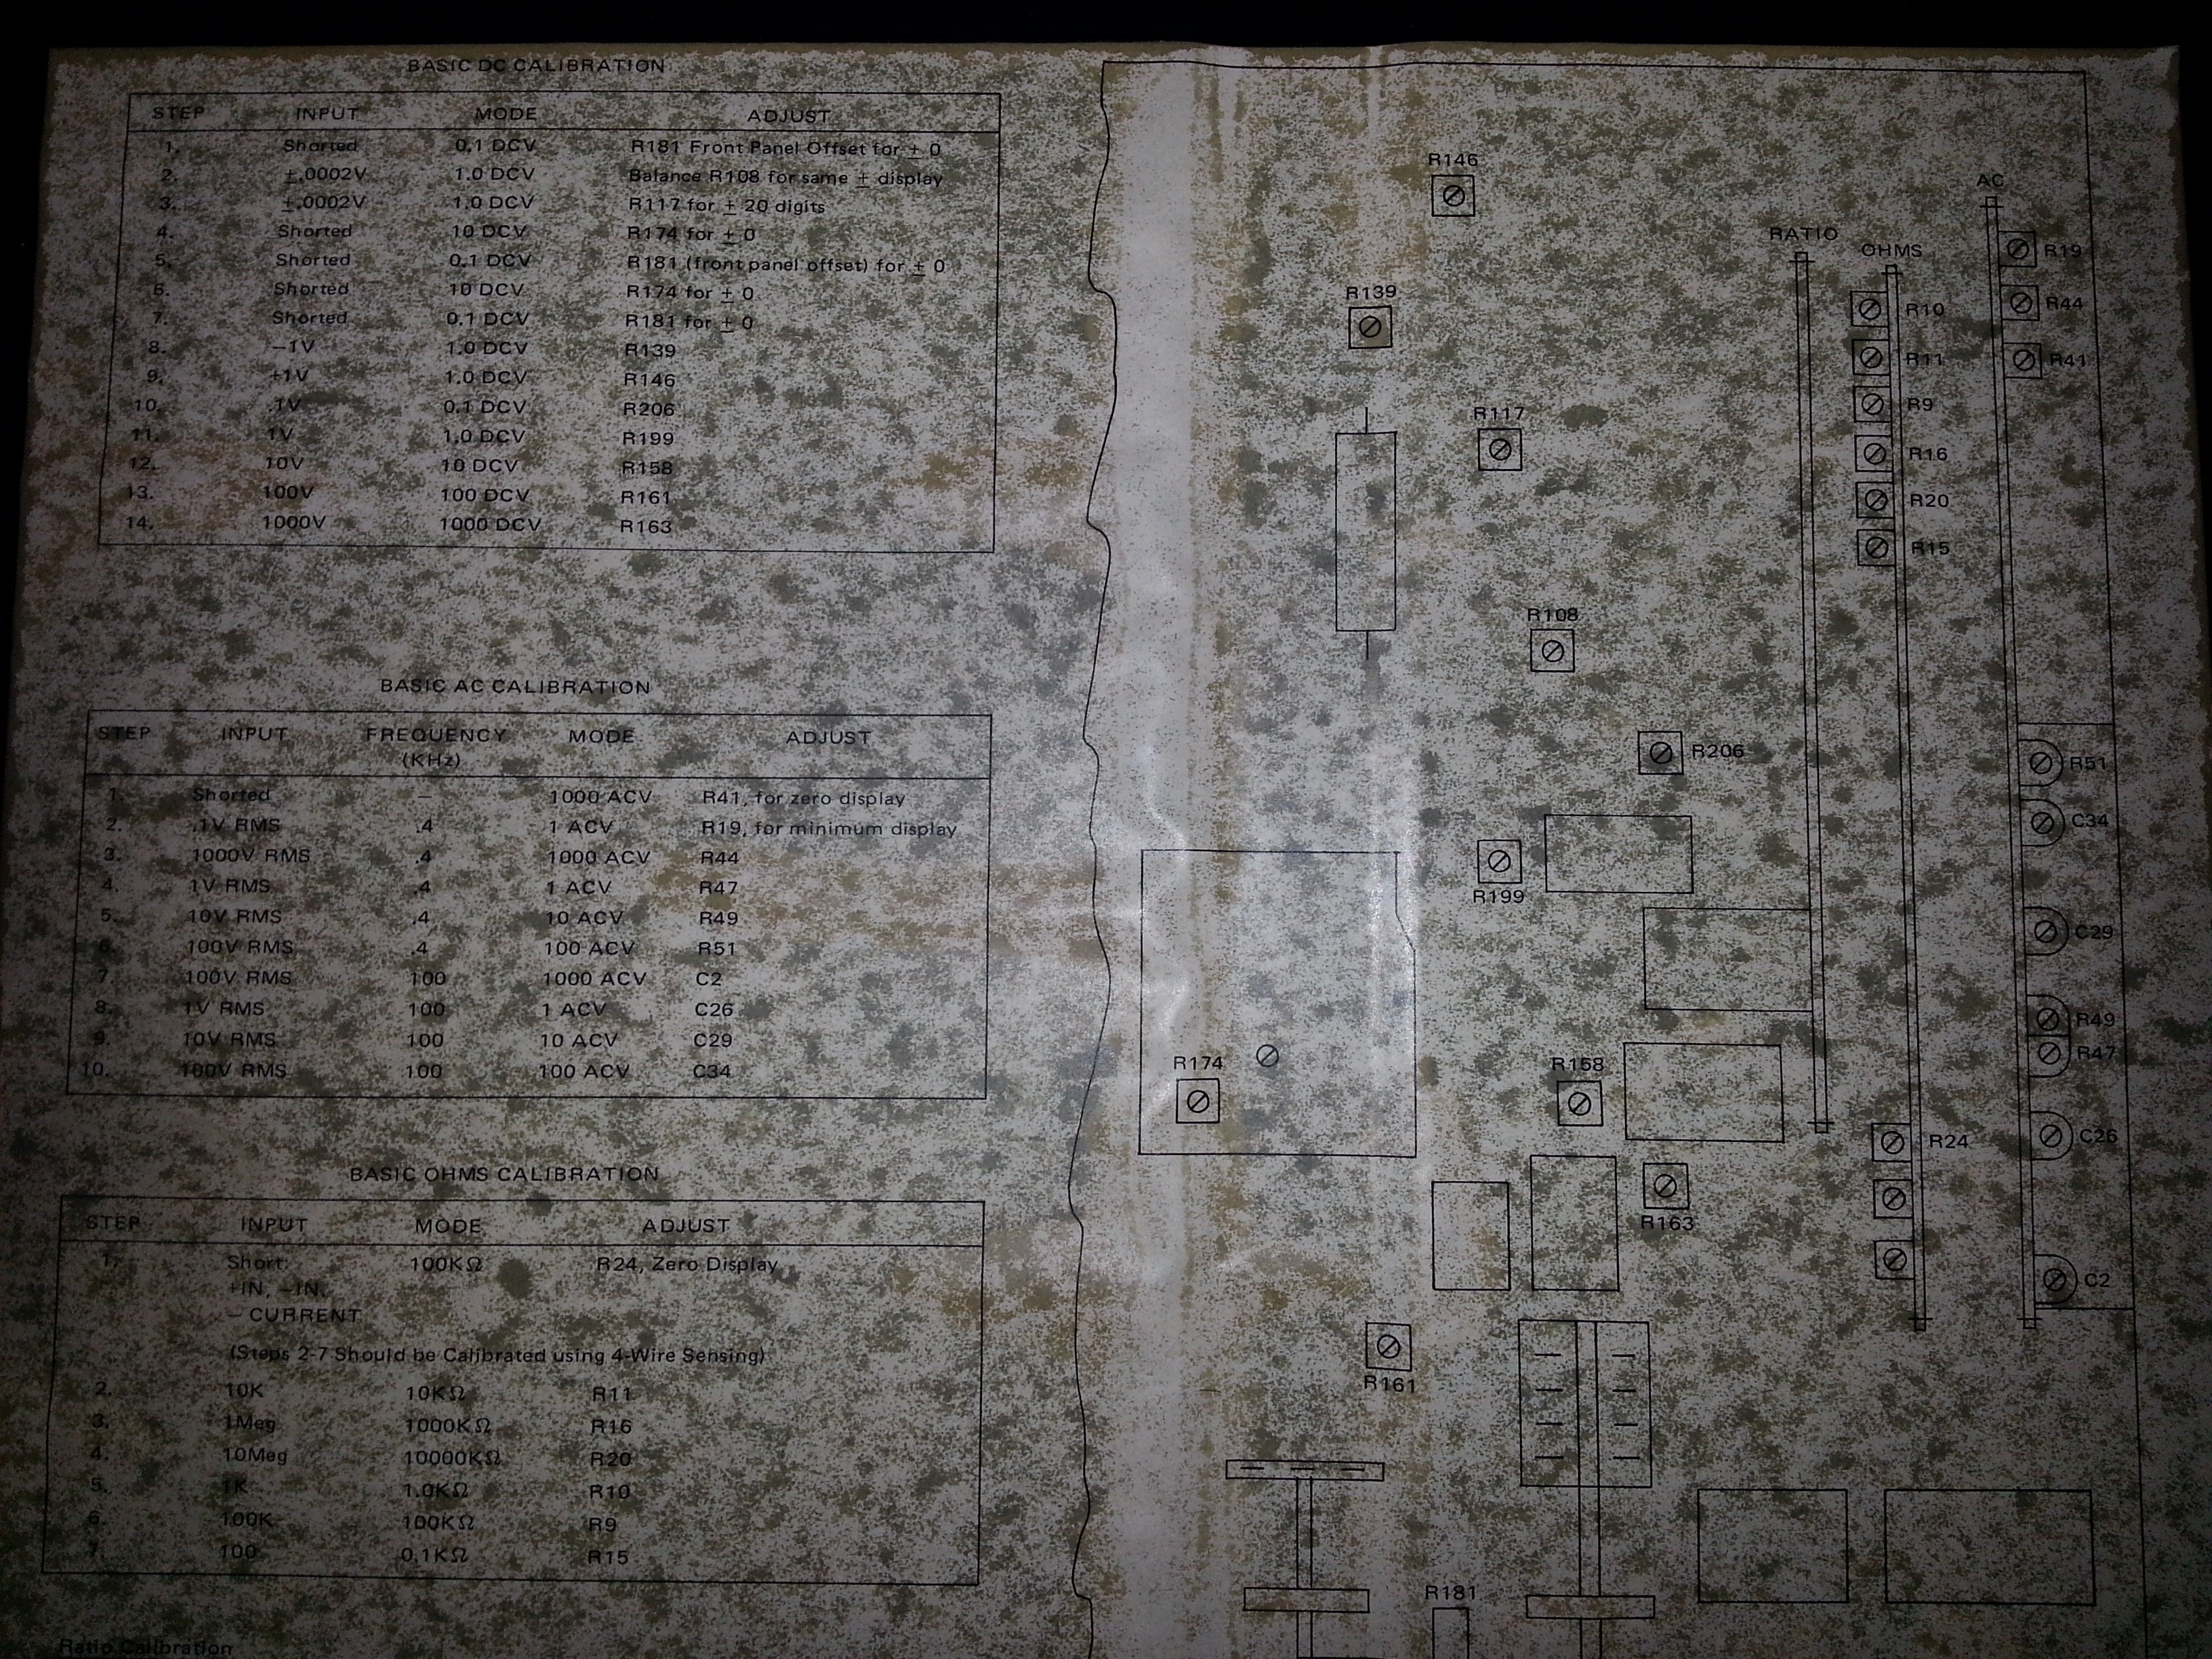 BASIC DC CALIBRATION
STEP INPUT MODE ADJUST
1. Shorted 0.1 DCV R181 Front Panel Offset for ± 0
2. ±.0002V 1.0 DCV Balance R108 for same ± display
3. ±.0002V 1.0 DCV R117 for ± 20 digits
4. Shorted 10 DCV R174 for ± 0
5. Shorted 0.1 DCV R181 (front panel offset) for ± 0
6. Shorted 10 DCV R174 for ± 0
7. Shorted 0.1 DCV R181 for ± 0
8. −1V 1.0 DCV R139
9. +1V 1.0 DCV R146
10. .1V 0.1 DCV R206
11. 1V 1.0 DCV R199
12. 10V 10 DCV R158
13. 100V 100 DCV R161
14. 1000V 1000 DCV R163
BASIC AC CALIBRATION
STEP INPUT FREQUENCY MODE ADJUST
(KHz)
1. Shorted — 1000 ACV R41, for zero display
2. .1V RMS .4 1 ACV R19, for minimum display
3. 1000V RMS .4 1000 ACV R44
4. 1V RMS .4 1 ACV R47
5. 10V RMS .4 10 ACV R49
6. 100V RMS .4 100 ACV R51
7. 100V RMS 100 1000 ACV C2
8. 1V RMS 100 1 ACV C26
9. 10V RMS 100 10 ACV C29
10. 100V RMS 100 100 ACV C34
BASIC OHMS CALIBRATION
STEP INPUT MODE ADJUST
1. Short: 100KΩ R24, Zero Display
+IN, −IN,
− CURRENT
(Steps 2-7 Should be Calibrated using 4-Wire Sensing)
2. 10K 10KΩ R11
3. 1Meg 1000KΩ R16
4. 10Meg 10000KΩ R20
5. 1K 1.0KΩ R10
6. 100K 100KΩ R9
7. 100 0.1KΩ R15
Ratio Calibration
R146
AC
RATIO
OHMS
R19
R139
R44
R10
R11
R41
R9
R117
R16
R20
R15
R108
R206
R51
C34
R199
C29
R49
R47
R174
R158
R24
C26
R163
C2
R161
R181